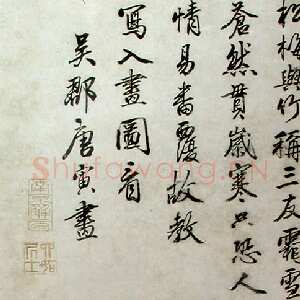 松柏與竹稱三友霜雪
蒼然貫歲寒只恐人
情易番覆故教
寫入畫圖看
吳郡唐寅畫
Shufawang.CN